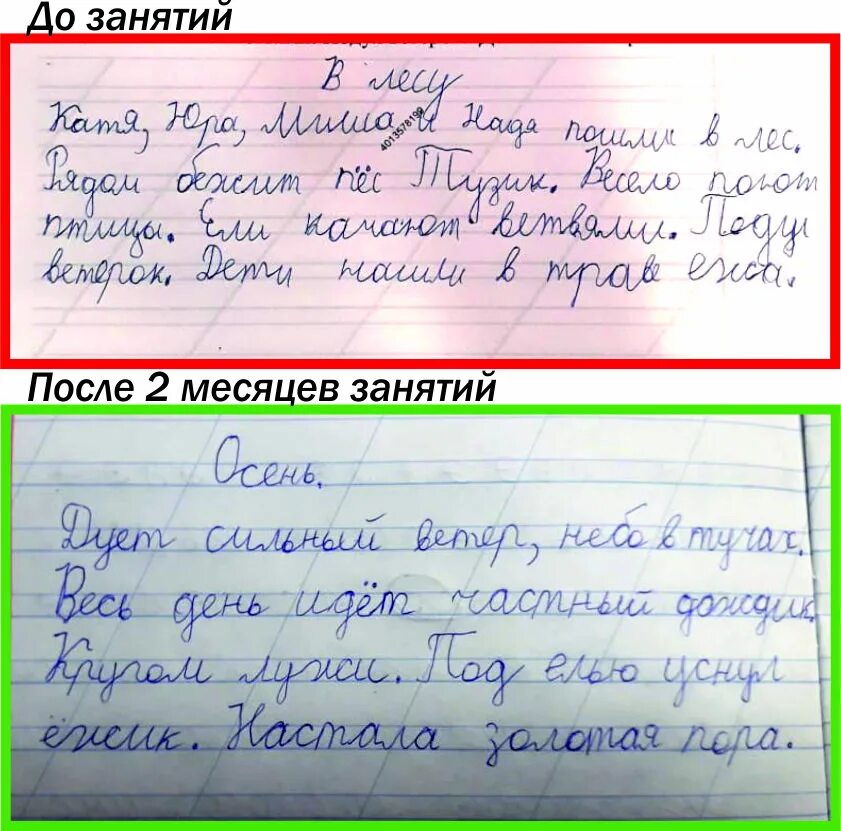 До занятий
В лесу
Катя, Юра, Миша и Надя пошли в лес.
4013578199
Рядом бежит пёс Тузик. Весело поют
птицы. Ели качают ветвями. Поду
ветерок. Дети нашли в траве ежа.
После 2 месяцев занятий
Осень.
Дует сильный ветер, небо в тучах.
Весь день идёт частный дождик.
Кругом лужи. Под елью уснул
ёжик. Настала золотая пора.